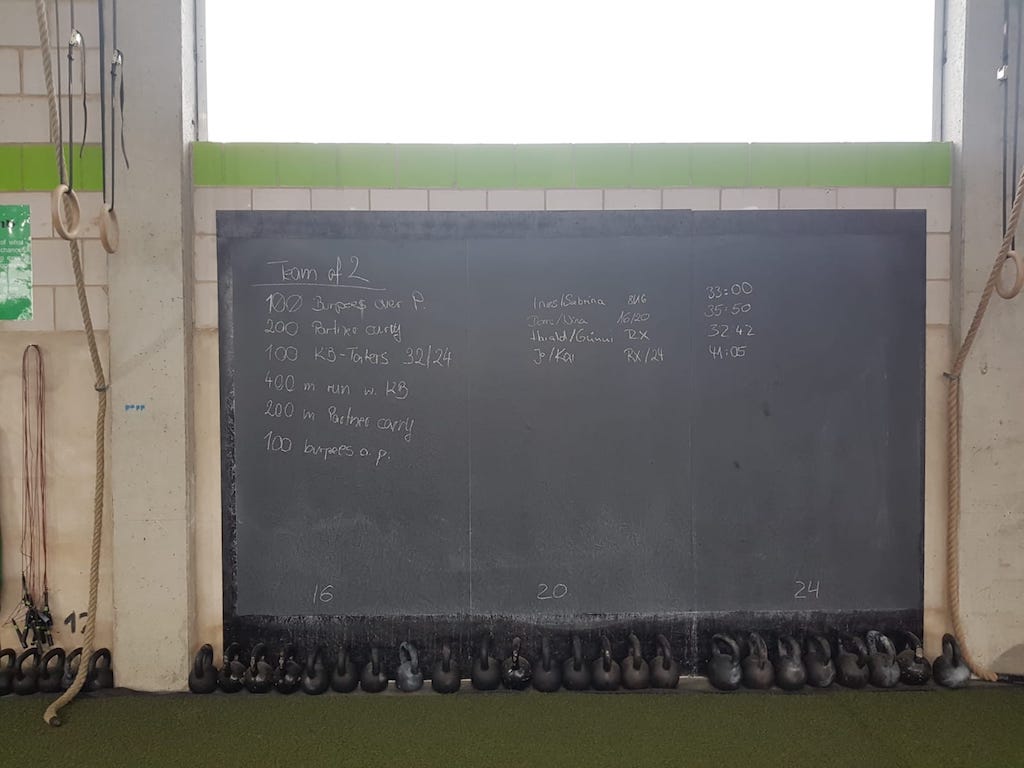 Team of 2
100 Burpees over P.
200 Partner carry
100 KB-Taters 32/24
400 m run w. KB
200 m Partner carry
100 burpees o. p.
Ines/Sabrina 8/16 33:00
/Nina 16/20 35:50
Harald/Günni RX 32:42
Jo/Kai RX/24 41:05
16 20 24
of what